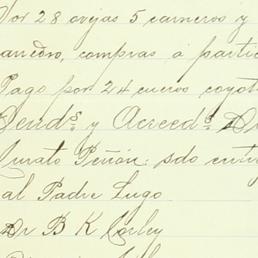 Por 28 ovejas 5 carneros y
compras a partid
Pago por 24 cueros coyot
Deuds. y Acreeds. D
Curato Peñon: sdo entre
al Padre Lugo
Dr B K Corley